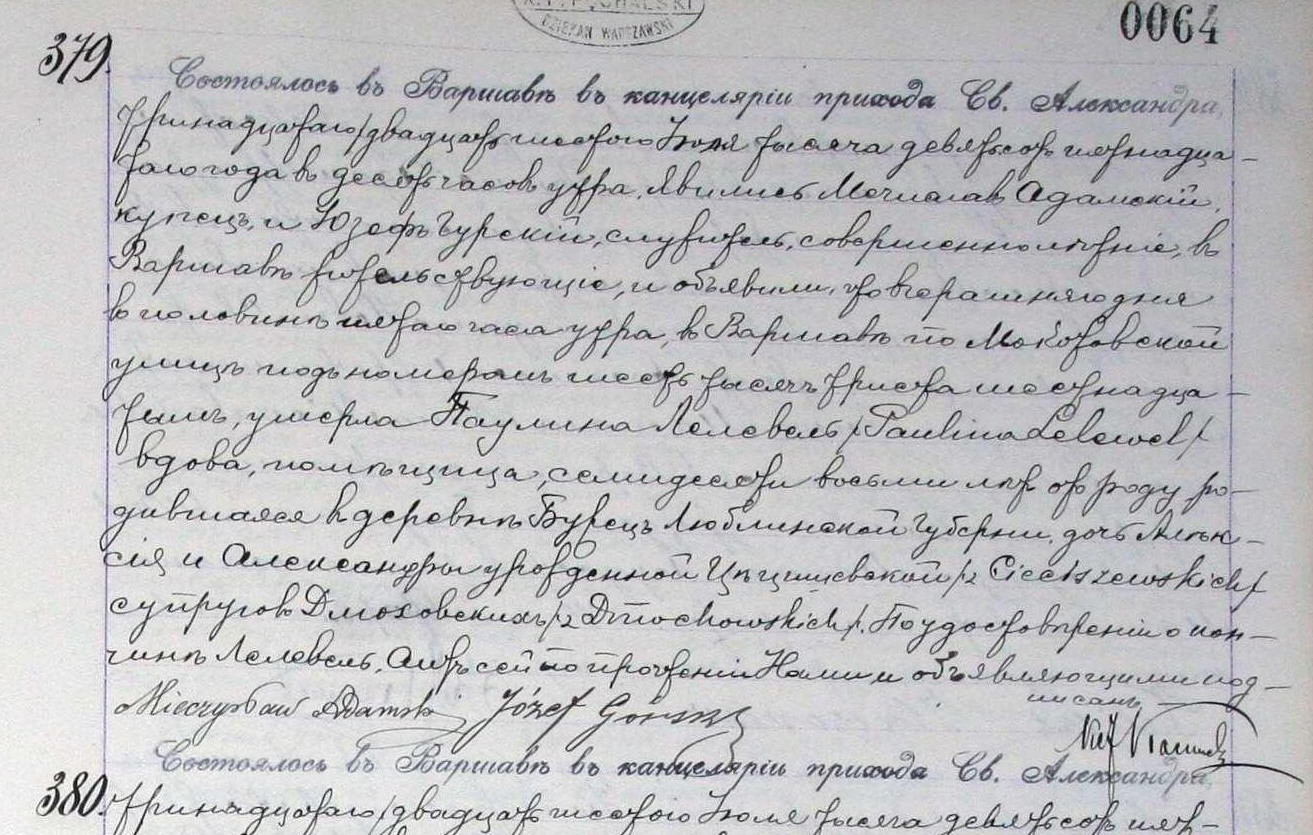 DZIEKAN WARSZAWSKI
0064
379.
Состоялось въ Варшавѣ въ канцеляріи прихода Св. Александра,
тринадцатаго/двадцать шестого Іюля тысяча девятьсотъ пятнадца-
таго года въ десять часовъ утра. Явились Мечиславъ Адамскій,
купецъ, и Юзефъ Гурскій, служитель, совершеннолѣтніе, въ
Варшавѣ жительствующіе, и объявили, что вчерашняго дня
въ половинѣ пятаго часа утра, въ Варшавѣ по Мокотовской
улицѣ подъ номеромъ шесть тысячъ триста шестнадца-
тымъ, умерла Паулина Лелевель /Paulina Lelewel/
вдова, помѣщица, семидесяти восьми лѣтъ отъ роду, ро-
дившаяся въ деревнѣ Бурецъ Люблинской Губерніи, дочь Алек-
сія и Александры урожденной Цѣцишевской /z Cieciszewskich/
супруговъ Дмоховскихъ /z Dmochowskich/. По удостовѣреніи о кон-
чинѣ Лелевель, Актъ сей по прочтеніи Нами и объявляющими под-
писанъ
Mieczysław Adamski Józef Górski
380.
Состоялось въ Варшавѣ въ канцеляріи прихода Св. Александра,
тринадцатаго/двадцать шестого Іюля тысяча девятьсотъ пят-